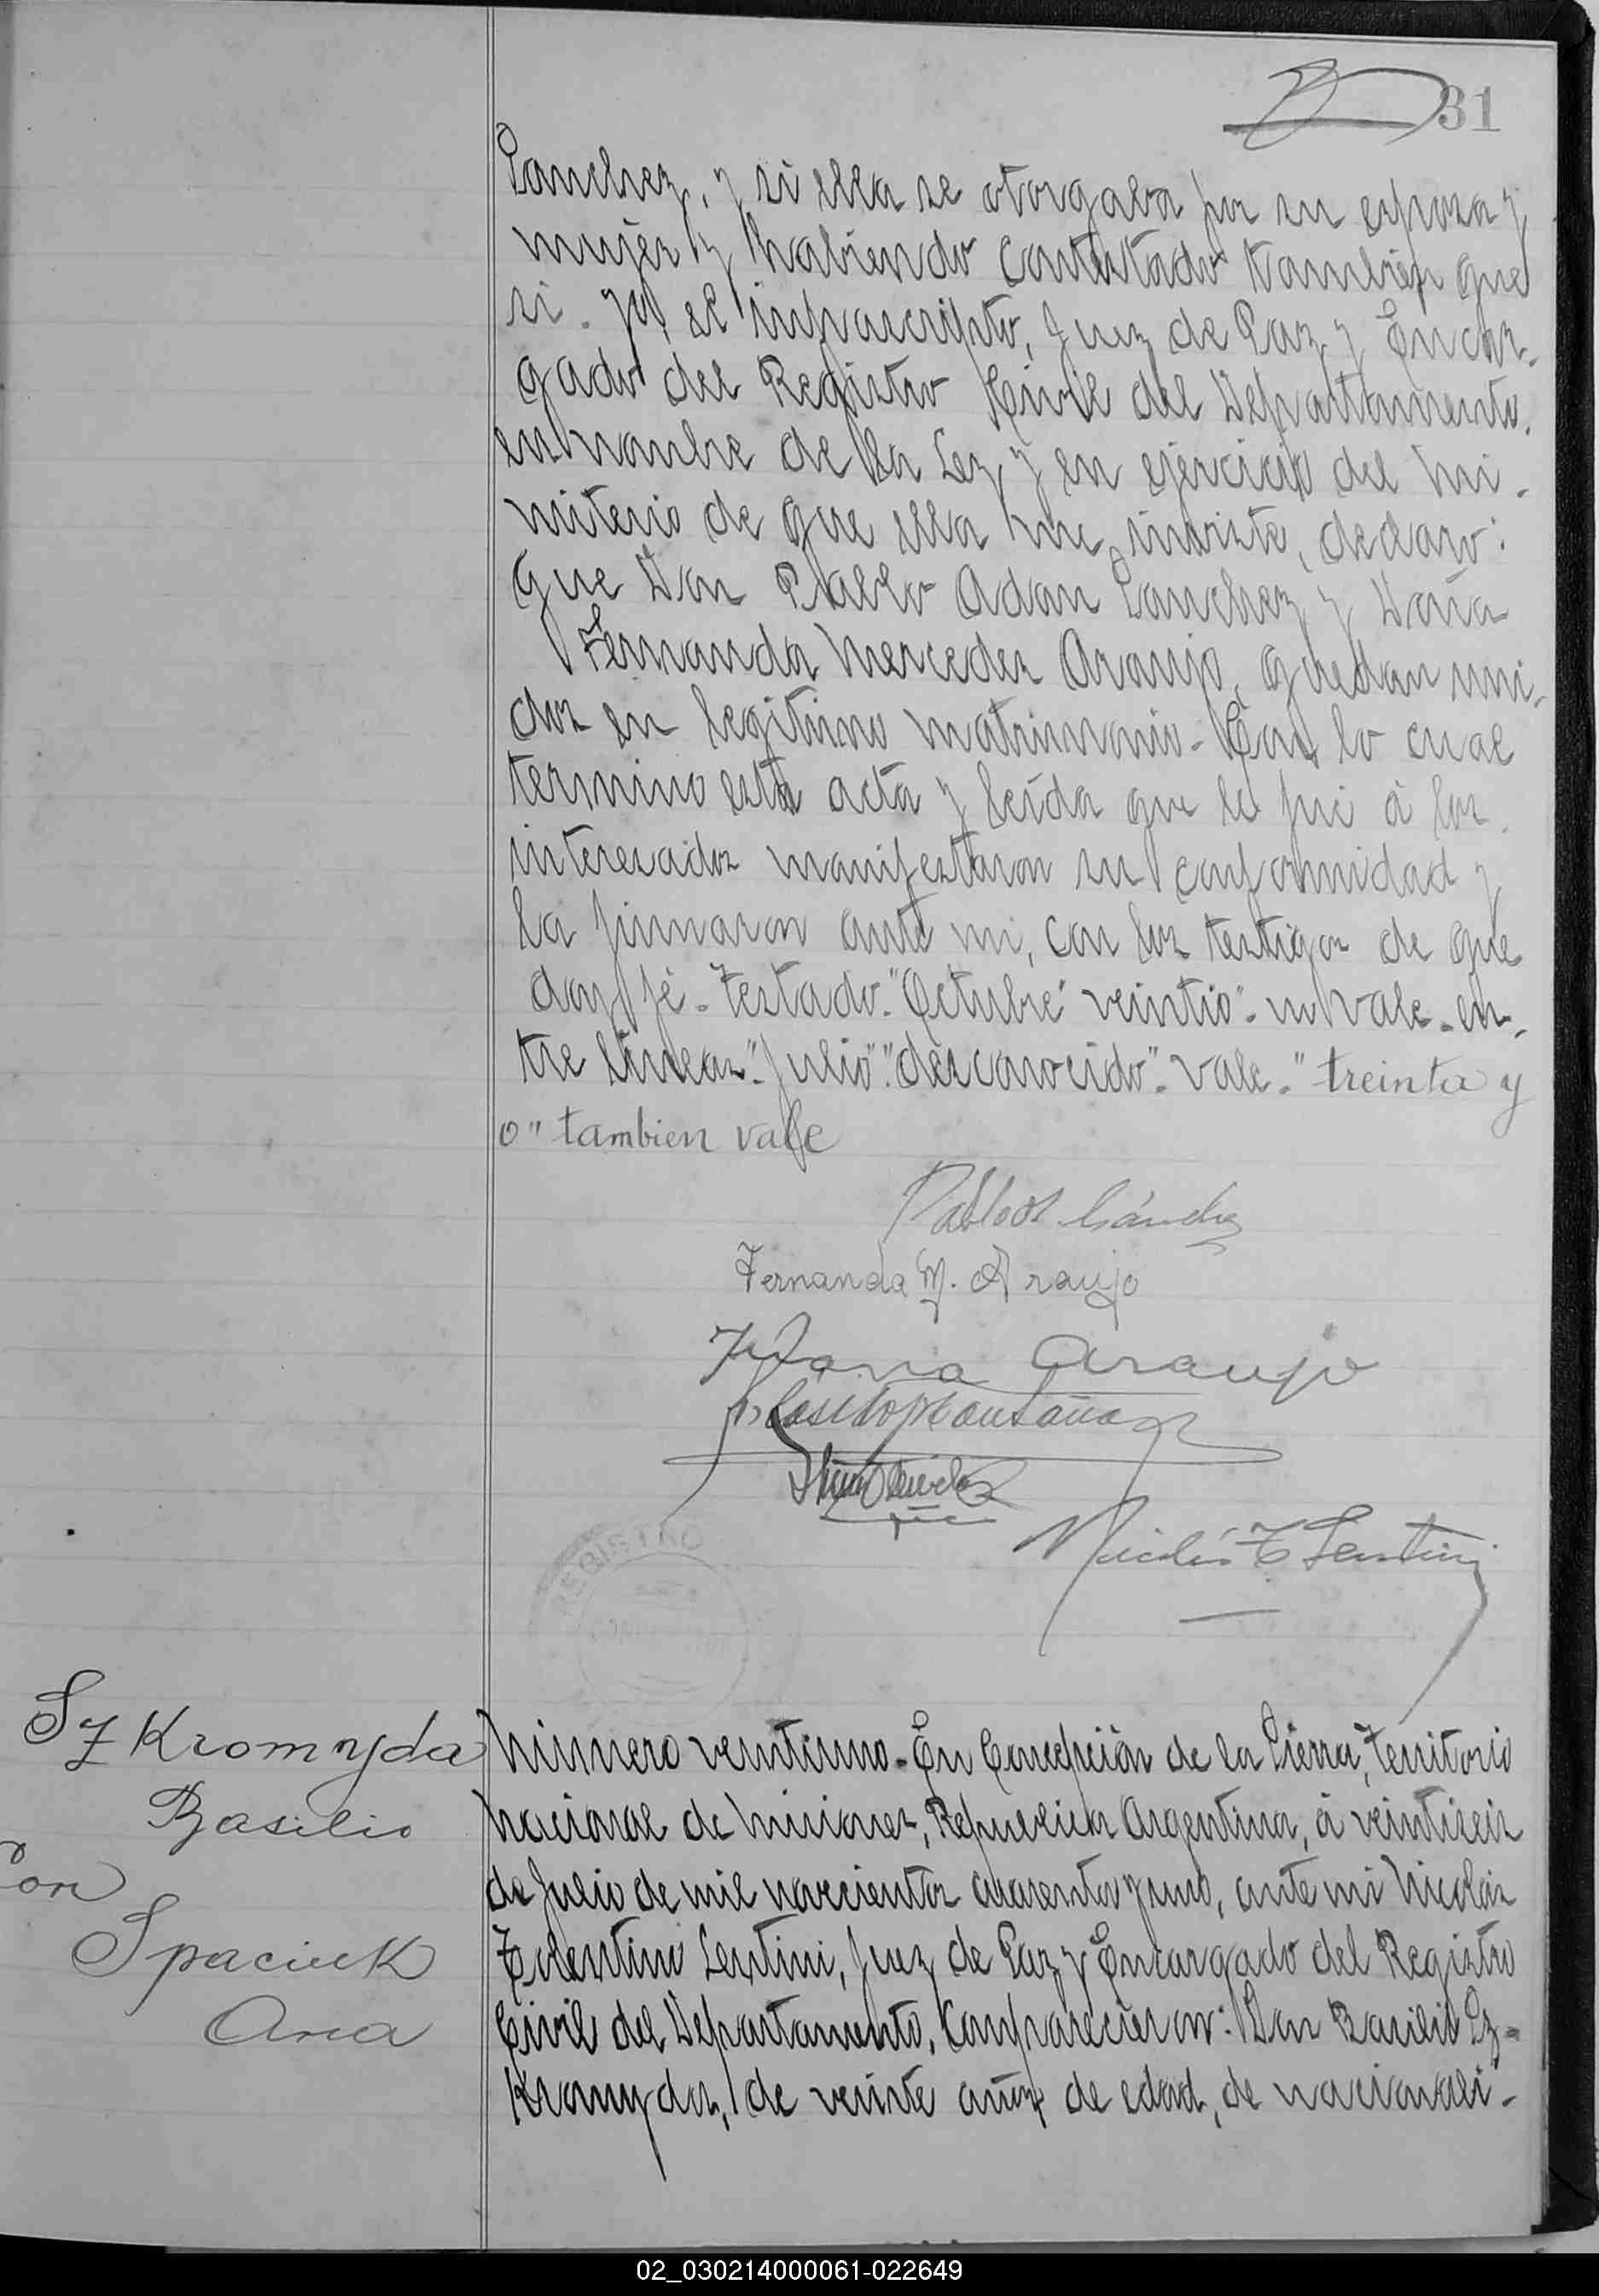 31
Sanchez, y si ella se otorgaba por su esposa y
mujer y habiendo contestado tambien que
si. Yo, el infrascripto, Juez de Paz y Encar-
gado del Registro Civil del Departamento,
en nombre de la Ley y en ejercicio del mi-
niterio de que ella me inviste, declaro:
que Don Pablo Adan Sanchez y Doña
Fernanda Mercedes Araujo, quedan uni-
dos en legitimo matrimonio - Con lo cual
termino esta acta y leída que le fui á los
interesados manifestaron su conformidad y
la firmaron ante mi, con los testigos de que
doy fé - Testado - "Octubre" veintio" - no vale - en-
tre lineas - "Julio" "desconocido" - vale - "treinta y
o" tambien vale
Pablo A Sánchez
Fernanda M. Araujo
Araujo
REGISTRO
Nicolás T. Lentini
Sz Kromyda
Basilio
Con
Spaciuk
Ana
Número veintiuno - En Concepción de la Sierra, Territorio
Nacional de Misiones, Republica Argentina, á veintiseis
de Julio de mil novecientos cuarenta y uno, ante mi Nicolás
Tolentino Lentini, Juez de Paz y Encargado del Registro
Civil del Departamento, Comparecieron: Don Basilio Sz-
Kromyda, de veinte años de edad, de nacionali-
02_030214000061-022649